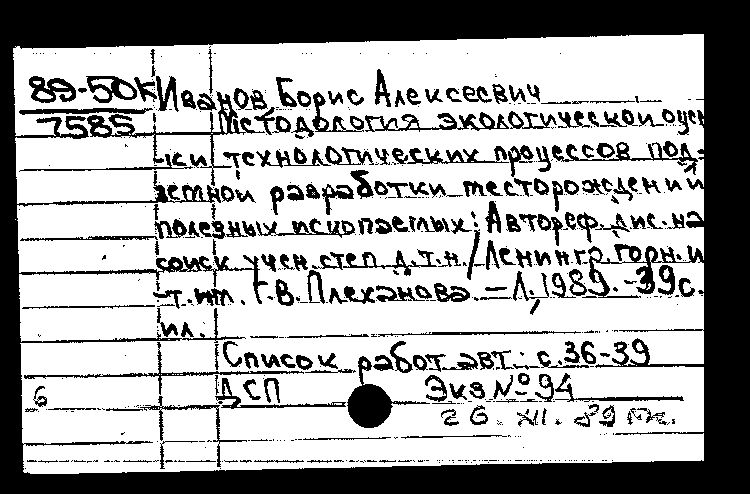 89-50К
7585
Иванов, Борис Алексеевич
Методология экологической оцен
-ки технологических процессов под-
земной разработки месторождений
полезных ископаемых: Автореф. дис. на
соиск учен. степ. д.т.н. / Ленингр. горн. и
-т. им. Г.В. Плеханова. – Л., 1989. -39с.
ил.
Список работ авт.: с.36-39
6 ДСП Экз №94
26. XII. 89